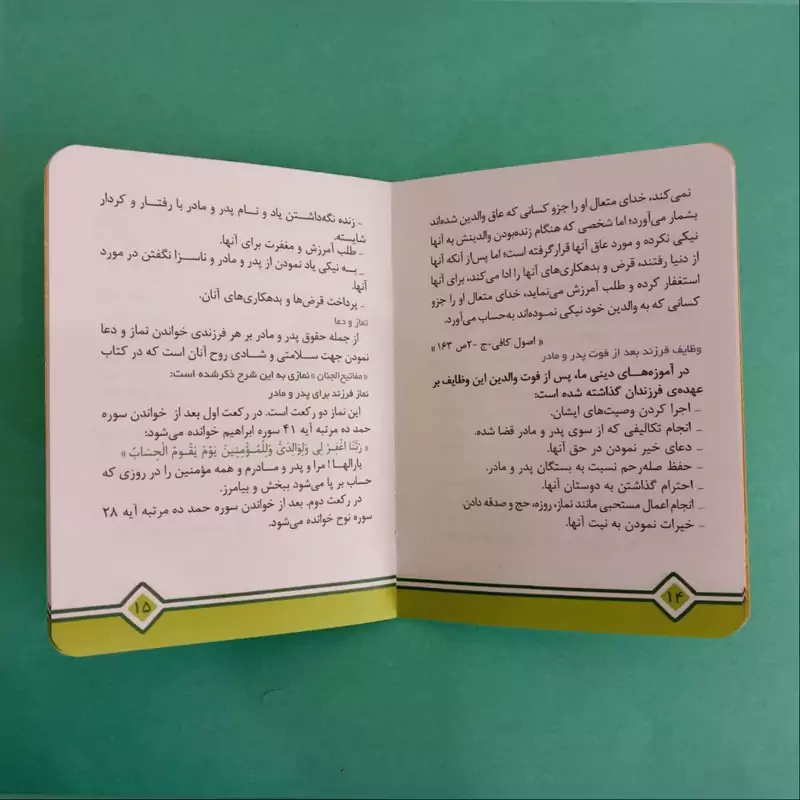 نمی‌کند، خدای متعال او را جزو کسانی که عاق والدین شده‌اند
بشمار می‌آورد؛ اما شخصی که هنگام زنده‌بودن والدینش به آنها
نیکی نکرده و مورد عاق آنها قرارگرفته است؛ اما پس‌از آنکه آنها
از دنیا رفتند، قرض و بدهکاری‌های آنها را ادا می‌کند، برای آنها
استغفار کرده و طلب آمرزش می‌نماید، خدای متعال او را جزو
کسانی که به والدین خود نیکی نموده‌اند به‌حساب می‌آورد.
« اصول کافی-ج -۲ص ۱۶۳ »
وظایف فرزند بعد از فوت پدر و مادر
در آموزه‌های دینی ما، پس از فوت والدین این وظایف بر
عهده‌ی فرزندان گذاشته شده است:
_ اجرا کردن وصیت‌های ایشان.
_ انجام تکالیفی که از سوی پدر و مادر قضا شده.
_ دعای خیر نمودن در حق آنها.
_ حفظ صله‌رحم نسبت به بستگان پدر و مادر.
_ احترام گذاشتن به دوستان آنها.
_ انجام اعمال مستحبی مانند نماز، روزه، حج و صدقه دادن.
_ خیرات نمودن به نیت آنها.
۱۴
_ زنده نگه‌داشتن یاد و نام پدر و مادر با رفتار و کردار
شایسته.
_ طلب آمرزش و مغفرت برای آنها.
_ به نیکی یاد نمودن از پدر و مادر و ناسزا نگفتن در مورد
آنها.
_ پرداخت قرض‌ها و بدهکاری‌های آنان.
نماز و دعا
از جمله حقوق پدر و مادر بر هر فرزندی خواندن نماز و دعا
نمودن جهت سلامتی و شادی روح آنان است که در کتاب
«مفاتیح‌الجنان» نمازی به این شرح ذکرشده است:
نماز فرزند برای پدر و مادر
این نماز دو رکعت است. در رکعت اول بعد از خواندن سوره
حمد ده مرتبه آیه ۴۱ سوره ابراهیم خوانده می‌شود:
« رَبَّنَا اغْفِرْ لِی وَلِوَالِدَیَّ وَلِلْمُؤْمِنِینَ یَوْمَ یَقُومُ الْحِسَابُ »
بارالها! مرا و پدر و مادرم و همه مؤمنین را در روزی که
حساب بر پا می‌شود ببخش و بیامرز.
در رکعت دوم. بعد از خواندن سوره حمد ده مرتبه آیه ۲۸
سوره نوح خوانده می‌شود.
۱۵